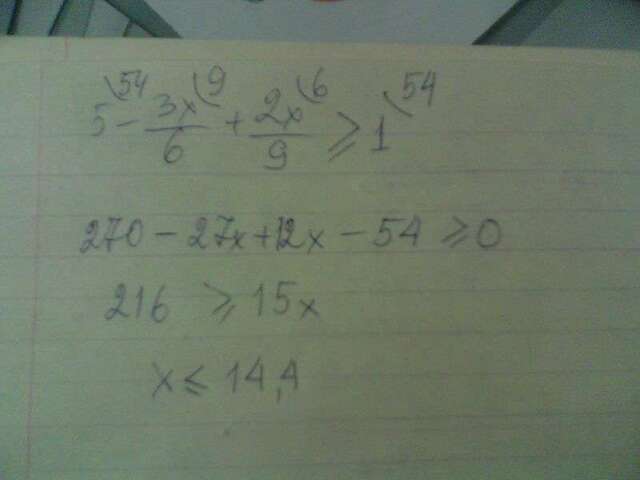 5\54 - 3x/6\9 + 2x/9\6 ⩾ 1\54
270 - 27x + 12x - 54 ⩾ 0
216 ⩾ 15x
x ⩽ 14,4